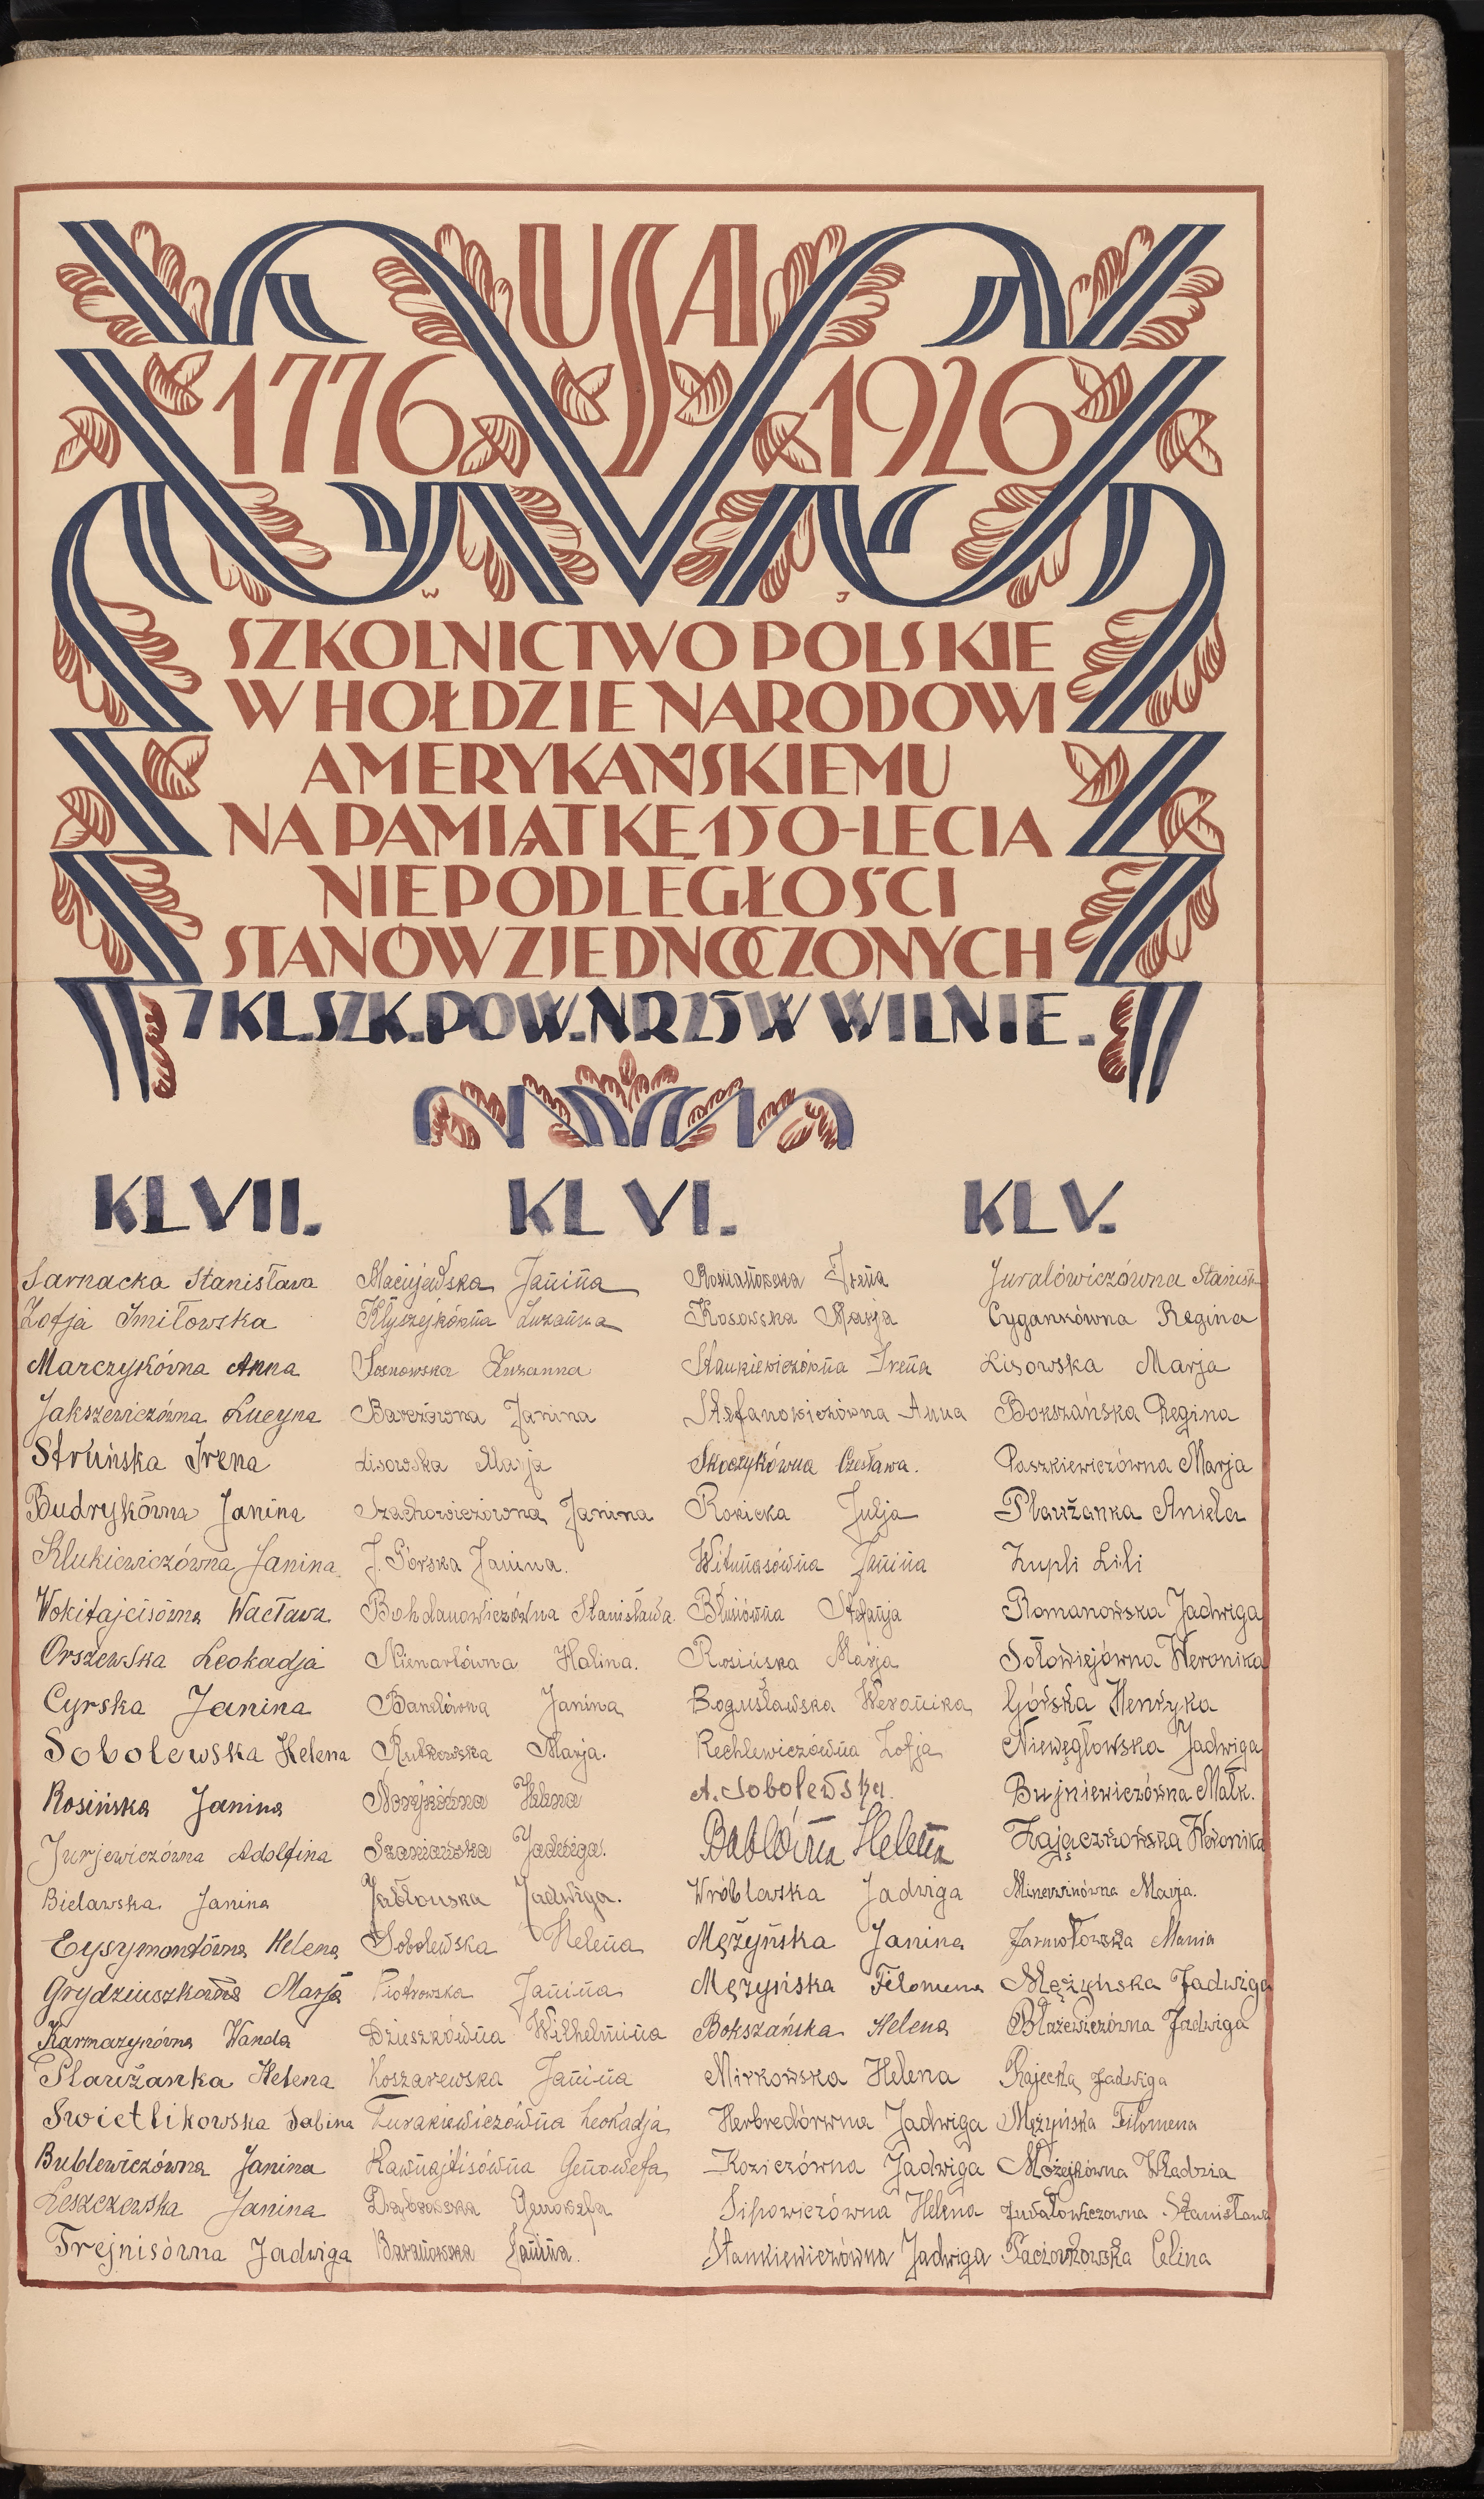 USA
1776 1926
W J
SZKOLNICTWO POLSKIE
W HOŁDZIE NARODOWI
AMERYKAŃSKIEMU
NA PAMIĄTKĘ 150-LECIA
NIEPODLEGŁOŚCI
STANÓW ZJEDNOCZONYCH
7 KL. SZK. POW. NR 25 W WILNIE.
KL VII.
Sarnacka Stanisława
Zofja Smiłowska
Marczykówna Anna
Jakszewiczówna Lucyna
Struńska Irena
Budrykówna Janina
Klukiewiczówna Janina.
Wokitajcisówna Wacława
Orszewska Leokadja
Cyrska Janina
Sobolewska Helena
Rosińska Janina
Jurjewiczówna Adolfina
Bielawska Janina
Eysymontówna Helena
Grydziuszkówna Marja
Karmazynówna Wanda
Pławżanka Helena
Swietlikowska Sabina
Bublewiczówna Janina
Leszczewska Janina
Trejnisówna Jadwiga
KL VI.
Maciejewska Janina
Kłyszejkówna Zuzanna
Sosnowska Zuzanna
Barczówna Janina
Lisowska Marja
Szachowiczówna Janina
J. Górska Janina.
Bohdanowiczówna Stanisława.
Nienartówna Halina.
Bandówna Janina
Rutkowska Marja.
Noryków̄na Helena
Szaniawska Jadwiga.
Jabłonska Jadwiga.
Sobolewska Helena
Piotrowska Janina
Dzieszkówna Wilhelmina
Koszarewska Janina
Żurakiewiczówna Leokadja
Rawnajtisówna Genowefa
Dąbrowska Genowefa
Baranowska Janina.
Romanowska Irena
Kosowska Marja
Stankiewiczówna Irena
Stefanowiczówna Anna
Skoczykówna Czesława.
Rokicka Julja
Witunasówna Janina
Błusiówna Stefanja
Rosińska Marja
Bogusławska Weronika
Rechlewiczówna Zofja
A. Sobolewska.
Bublówna Helena
Wróblawska Jadwiga
Mężyńska Janina
Mężyńska Filomena
Bokszańska Helena
Mirkowska Helena
Herbredórwna Jadwiga
Koziczówna Jadwiga
Sipowiczówna Helena
Stankiewiczówna Jadwiga
KL V.
Juralówiczówna Stanisł
Cygankówna Regina
Lisowska Marja
Bokszańska Regina
Paszkiewiczówna Marja
Pławżanka Aniela
Zupli Lili
Romanowska Jadwiga
Sołowiejówna Weronika
Górska Henryka
Niewęgłowska Jadwiga
Bujniewiczówna Malk.
Zajączkowska Weronika
Minewinówna Marja.
Jarmołowska Mania
Mężyńska Jadwiga
Błażewiczówna Jadwiga
Rajecka Jadwiga
Mężyńska Filomena
Możejkówna Władzia
Juvałowiczowna Stanisława
Paciorkowska Celina